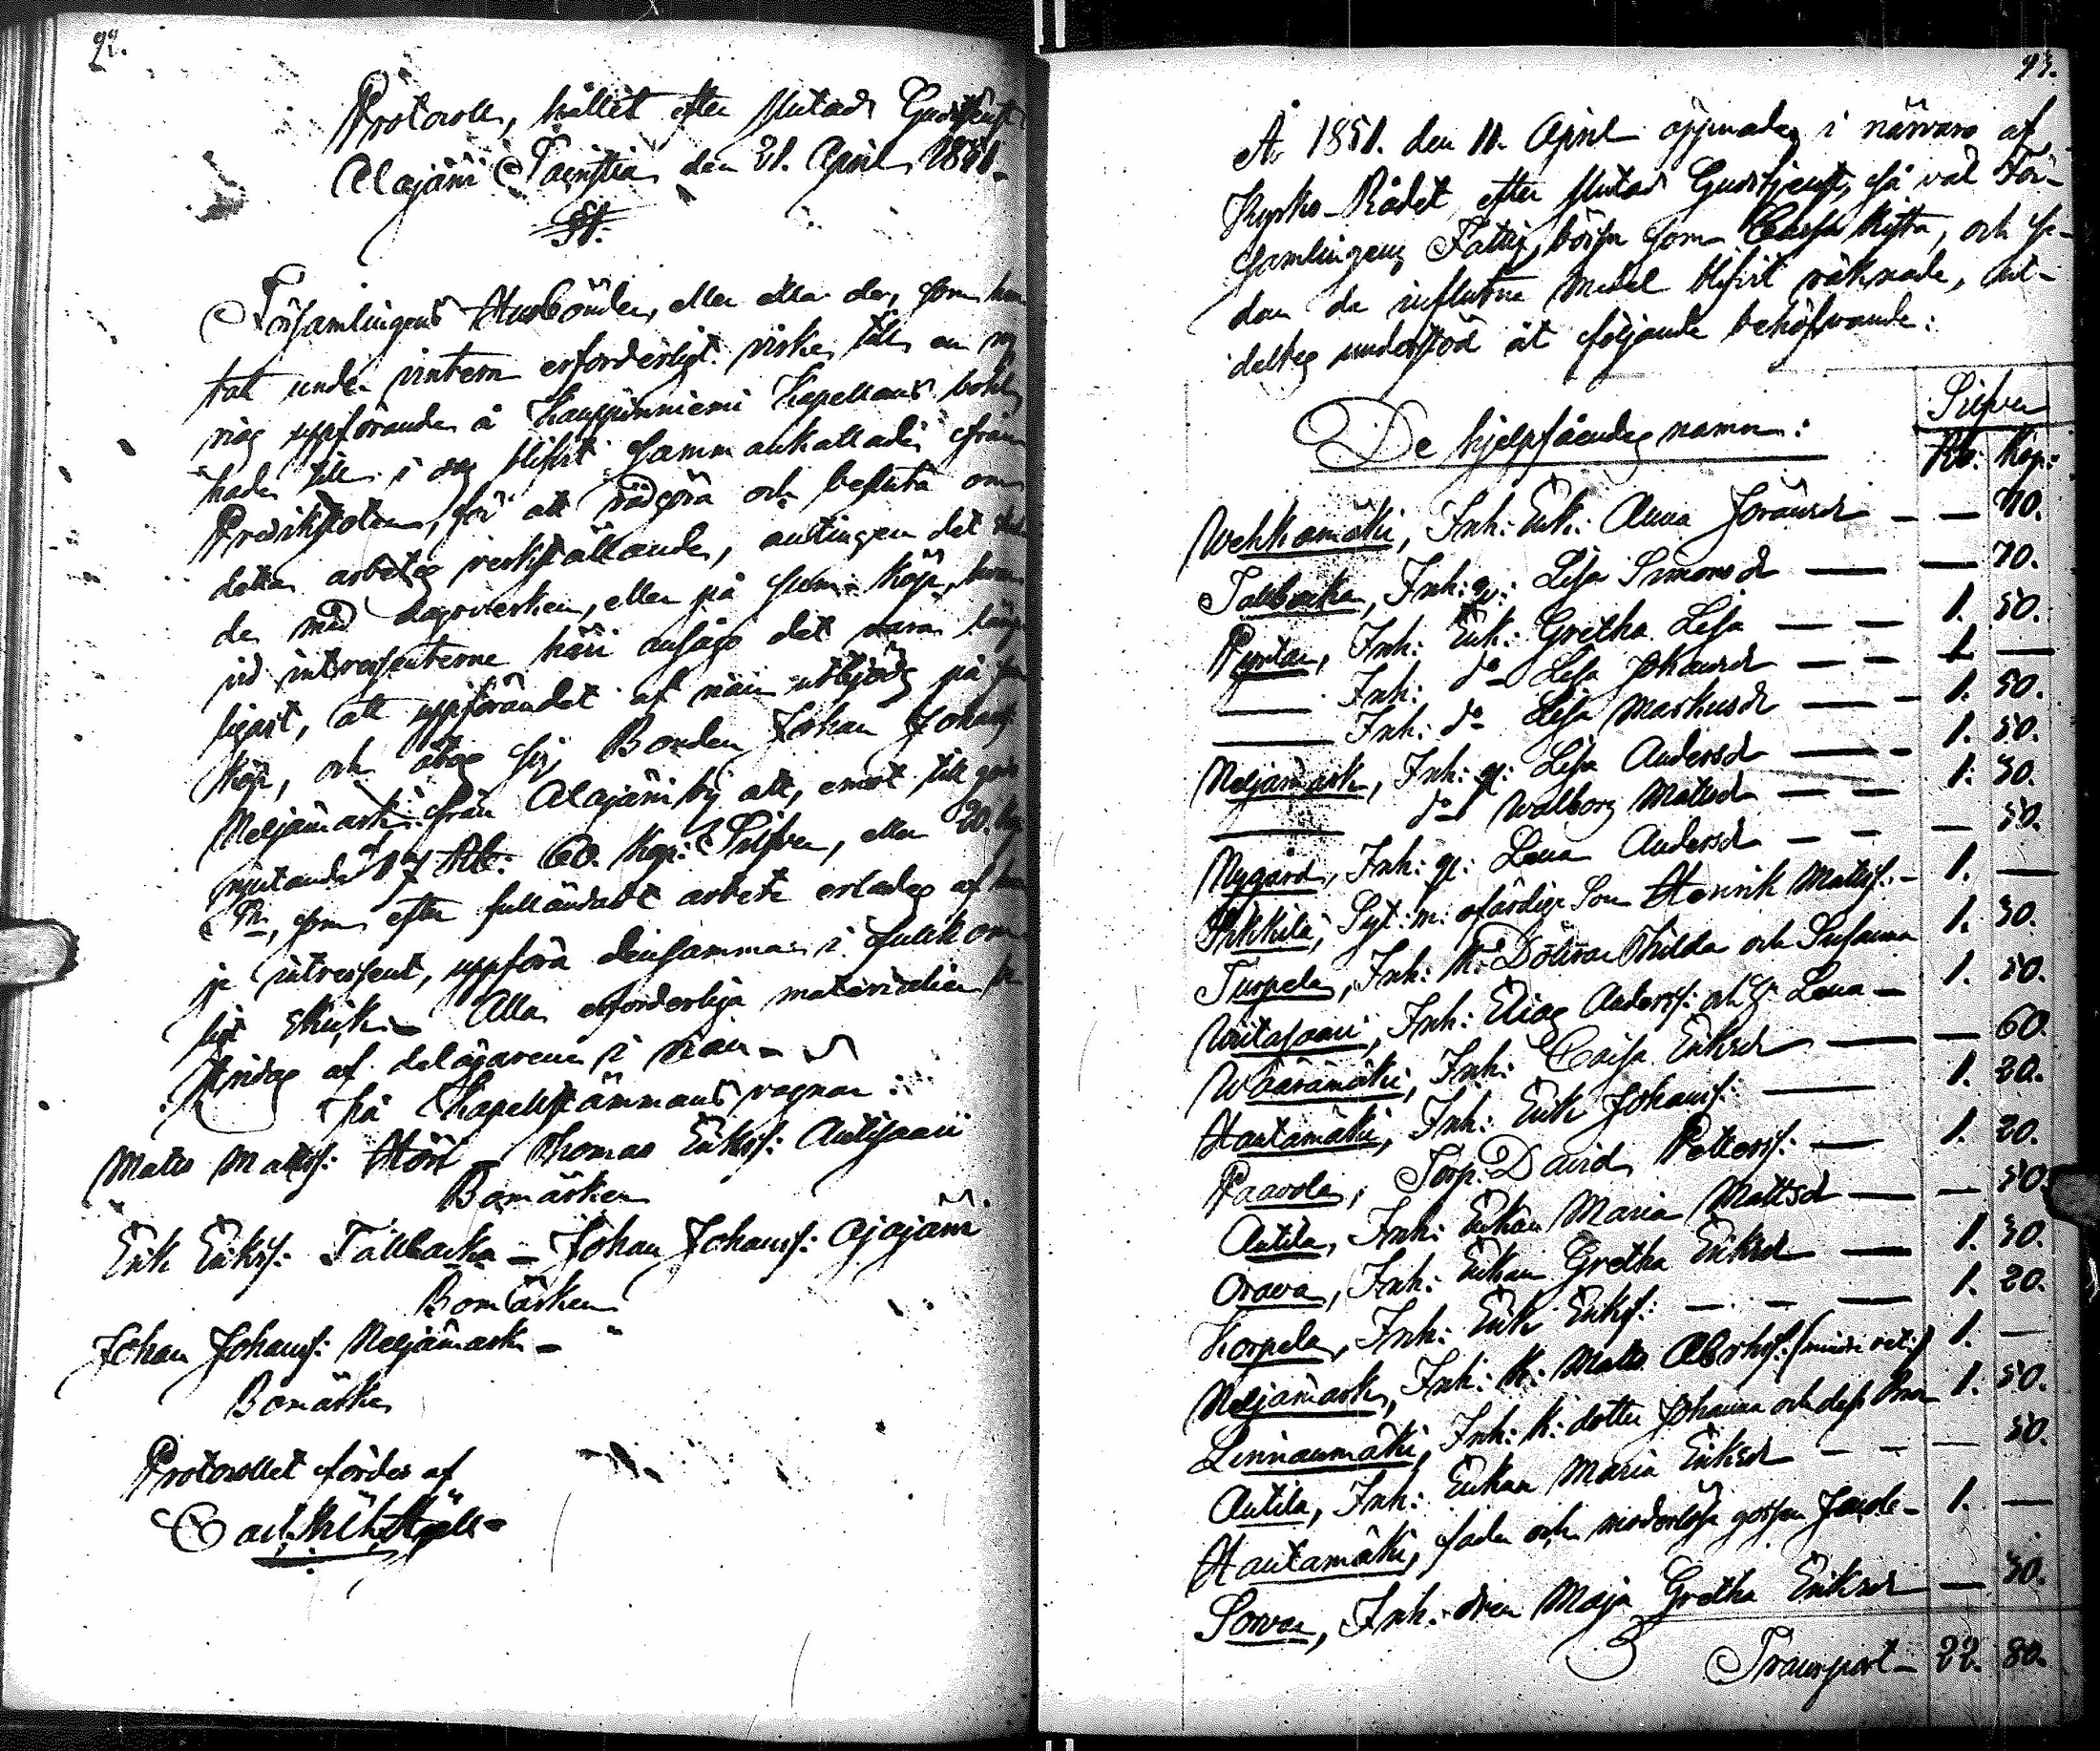 92.
Protocoll, hållet efter slutad Gudstjenst
Alajärvi den 21. April 1851.
§1.
Församlingens Husbönder, eller alla de, som
tat under vintern erforderligt virke till en ny
rias uppförande å Kauppinniemi Kapellans bohl,
hade till i dag blifvit sammankallade ifrån
Predikstolen, för att rådgöra och besluta om
detta arbetes verkställande, antingen det
de med dagsverken, eller på summa köp,
vid intressenterne häri ansågo det vara
ligast, att uppförandet af rian utbjöds på
köp, och åtog sig Bonden Johan Johanss:
Neljämark från Alajärvi by att, emot till godo
njutande af 17 Rub: 60. Kop: Silfver, eller 20.
som efter fulländadt arbete erlades af
je intressent, uppföra densamma i fullkom
ligt skick. Alla erforderliga materialier
af delägarene i rian.
På Kapellstämmans vägnar:
Matts Mattss: Thomas Erikss: Antisaari
Bomärken
Erik Erikss: Tallbacka – Johan Johanss: Alajärvi
Bomärken
Johan Johanss: Neljämark –
Bomärke
Protocollet fördes af
93.
År 1851. den 11. April öppnades i närvaro af
Kyrko-Rådet, efter slutad Gudstjenst, så väl För-
samlingens Fattig börssa som Cassa Kista, och se-
dan de influtna medel blifvit räknade, ut-
deltes understöd åt följande behöfvande:
De hjelpfåendes namn: Silfver
Rb: Kop:
Wehkamäki, Inh: Enk: Anna Joransd – — 70.
Tallbacka, Inh: q: Lisa Simonsd — — 70.
Pyntar, Inh: Enk: Gretha Lisa — — 1. 50.
— Inh: do Lisa Johansd — — 1. —
— Inh: do Lisa Markusd — — 1. 50.
Neljämark, Inh: q: Lisa Andersd — — 1. 50.
— do Walborg Mattsd — — 1. 30.
Nygård, Inh: q: Lena Andersd — — 50.
Pikkilä, Syt: n: ofärdige Son Henrik Mattss: – 1. —
Turpela, Inh: K: Döttrar Hilda och Susanna 1. 30.
Wiitasaari, Inh: Elias Anderss: och q: Lena – 1. 50.
Wäärämäki, Inh: Caisa Eriksd — — 60.
Hautamäki, Inh: Erik Johanss: — 1. 20.
Paavola, Torp: David Petterss: — 1. 20.
Antila, Inh: Enkan Maria Mattsd — — 50.
Orava, Inh: Enkan Gretha Eriksd — 1. 30.
Korpela, Inh: Erik Erikss: — — 1. 20.
Neljämark, Inh: K: Matts Abrhss: (mindre vet:) 1. —
Linnanmäki, Inh: K: dotter Johanna och dess 1. 50.
Antila, Inh: Enkan Maria Eriksd — — 50.
Hautamäki, fader och moderlösa gossen – 1. —
Sorvar, Inh: Maja Gretha Eriksd — 30.
Transport – 22. 80.